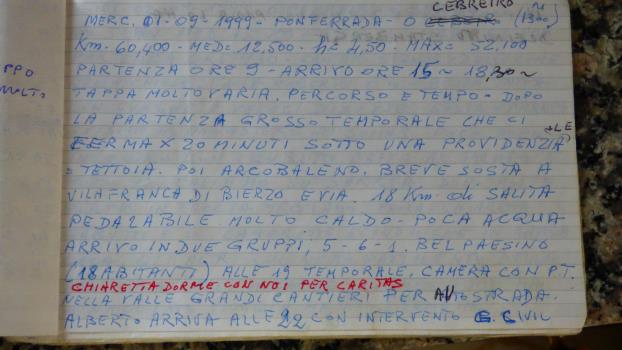 MERC. 01-09-1999 - PONFERRADA - O CEBREIRO (1300)
Km. 60,400 - MED= 12,500 - h= 4,50 - MAX= 52,100
PARTENZA ORE 9 - ARRIVO ORE 15 ~ 18,30 ~
TAPPA MOLTO VARIA, PERCORSO E TEMPO - DOPO
LA PARTENZA GROSSO TEMPORALE CHE CI
FERMA X 20 MINUTI SOTTO UNA PROVIDENZIALE
TETTOIA. POI ARCOBALENO. BREVE SOSTA A
VILAFRANCA DI BIERZO E VIA. 18 Km. di SALITA
PEDALABILE MOLTO CALDO - POCA ACQUA
ARRIVO IN DUE GRUPPI, 5-6-1. BEL PAESINO
(18 ABITANTI) ALLE 19 TEMPORALE, CAMERA CON P.T.
CHIARETTA DORME CON NOI PER CARITAS
NELLA VALLE GRANDI CANTIERI PER AUTOSTRADA.
ALBERTO ARRIVA ALLE 22 CON INTERVENTO G. CIVIL